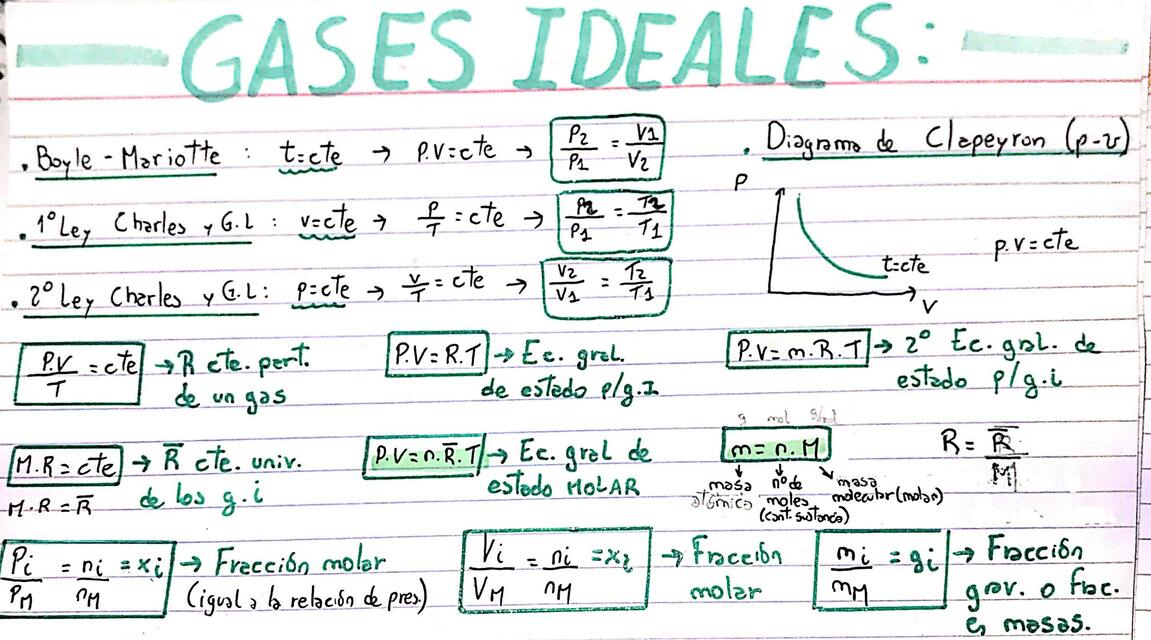 GASES IDEALES:
• Boyle - Mariotte : t=cte → P.V=cte → P2/P1 = V1/V2
• 1º Ley Charles y G.L : v=cte → P/T = cte → P2/P1 = T2/T1
• 2º Ley Charles y G.L: p=cte → v/T = cte → V2/V1 = T2/T1
• Diagrama de Clapeyron (p-v)
P
t=cte
V
p.v=cte
P.V/T = cte → R cte. pert.
de un gas
P.V=R.T → Ec. gral.
de estado p/g.I
P.V=m.R.T → 2º Ec. gral. de
estado p/g.i
M.R=cte → R̅ cte. univ.
de los g.i
M.R=R̅
P.V=n.R̅.T → Ec. gral de
estado MOLAR
g mol g/mol
m=n.M
masa
atómica
nº de
moles
(cant. sustancia)
masa
molecular (molar)
R = R̅/M
Pi/PM = ni/nM = xi → Fracción molar
(igual a la relación de pres.)
Vi/VM = ni/nM = xi → Fracción
molar
mi/mM = gi → Fracción
grav. o frac.
masas.